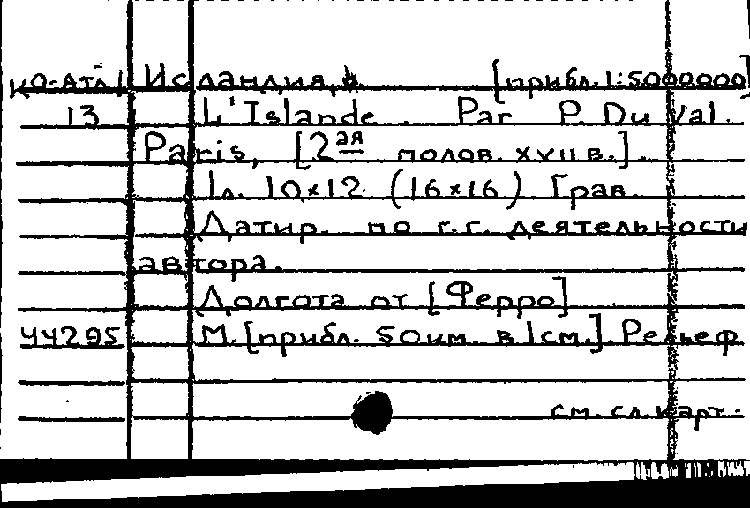 КО-АТЛ/ Исландия, [прибл. 1:5000000]
13 L'Islande. Par P. Du Val.
Paris, [2ая полов. XVII в.].
1 л. 10×12 (16×16) Грав.
Датир. по г.г. деятельности
автора.
Долгота от [Ферро]
44295 М. [прибл. 50 км. в 1 см.] Рельеф
см. сл. карт.